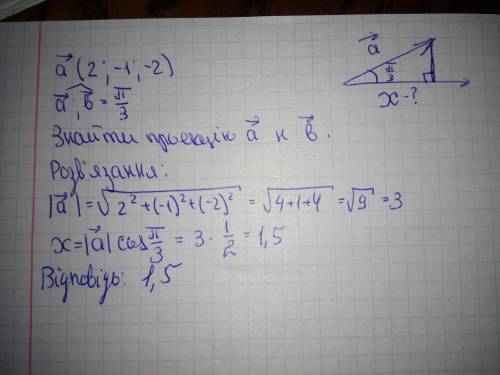 a⃗ (2; -1; -2)
a⃗; b⃗ = π/3
Знайти проекцію a⃗ н b⃗.
Розв'язання:
|a⃗| = √(2² + (-1)² + (-2)²) = √(4+1+4) = √9 = 3
x = |a⃗| cos π/3 = 3 · 1/2 = 1,5
Відповідь: 1,5
a⃗
π/3
x - ?